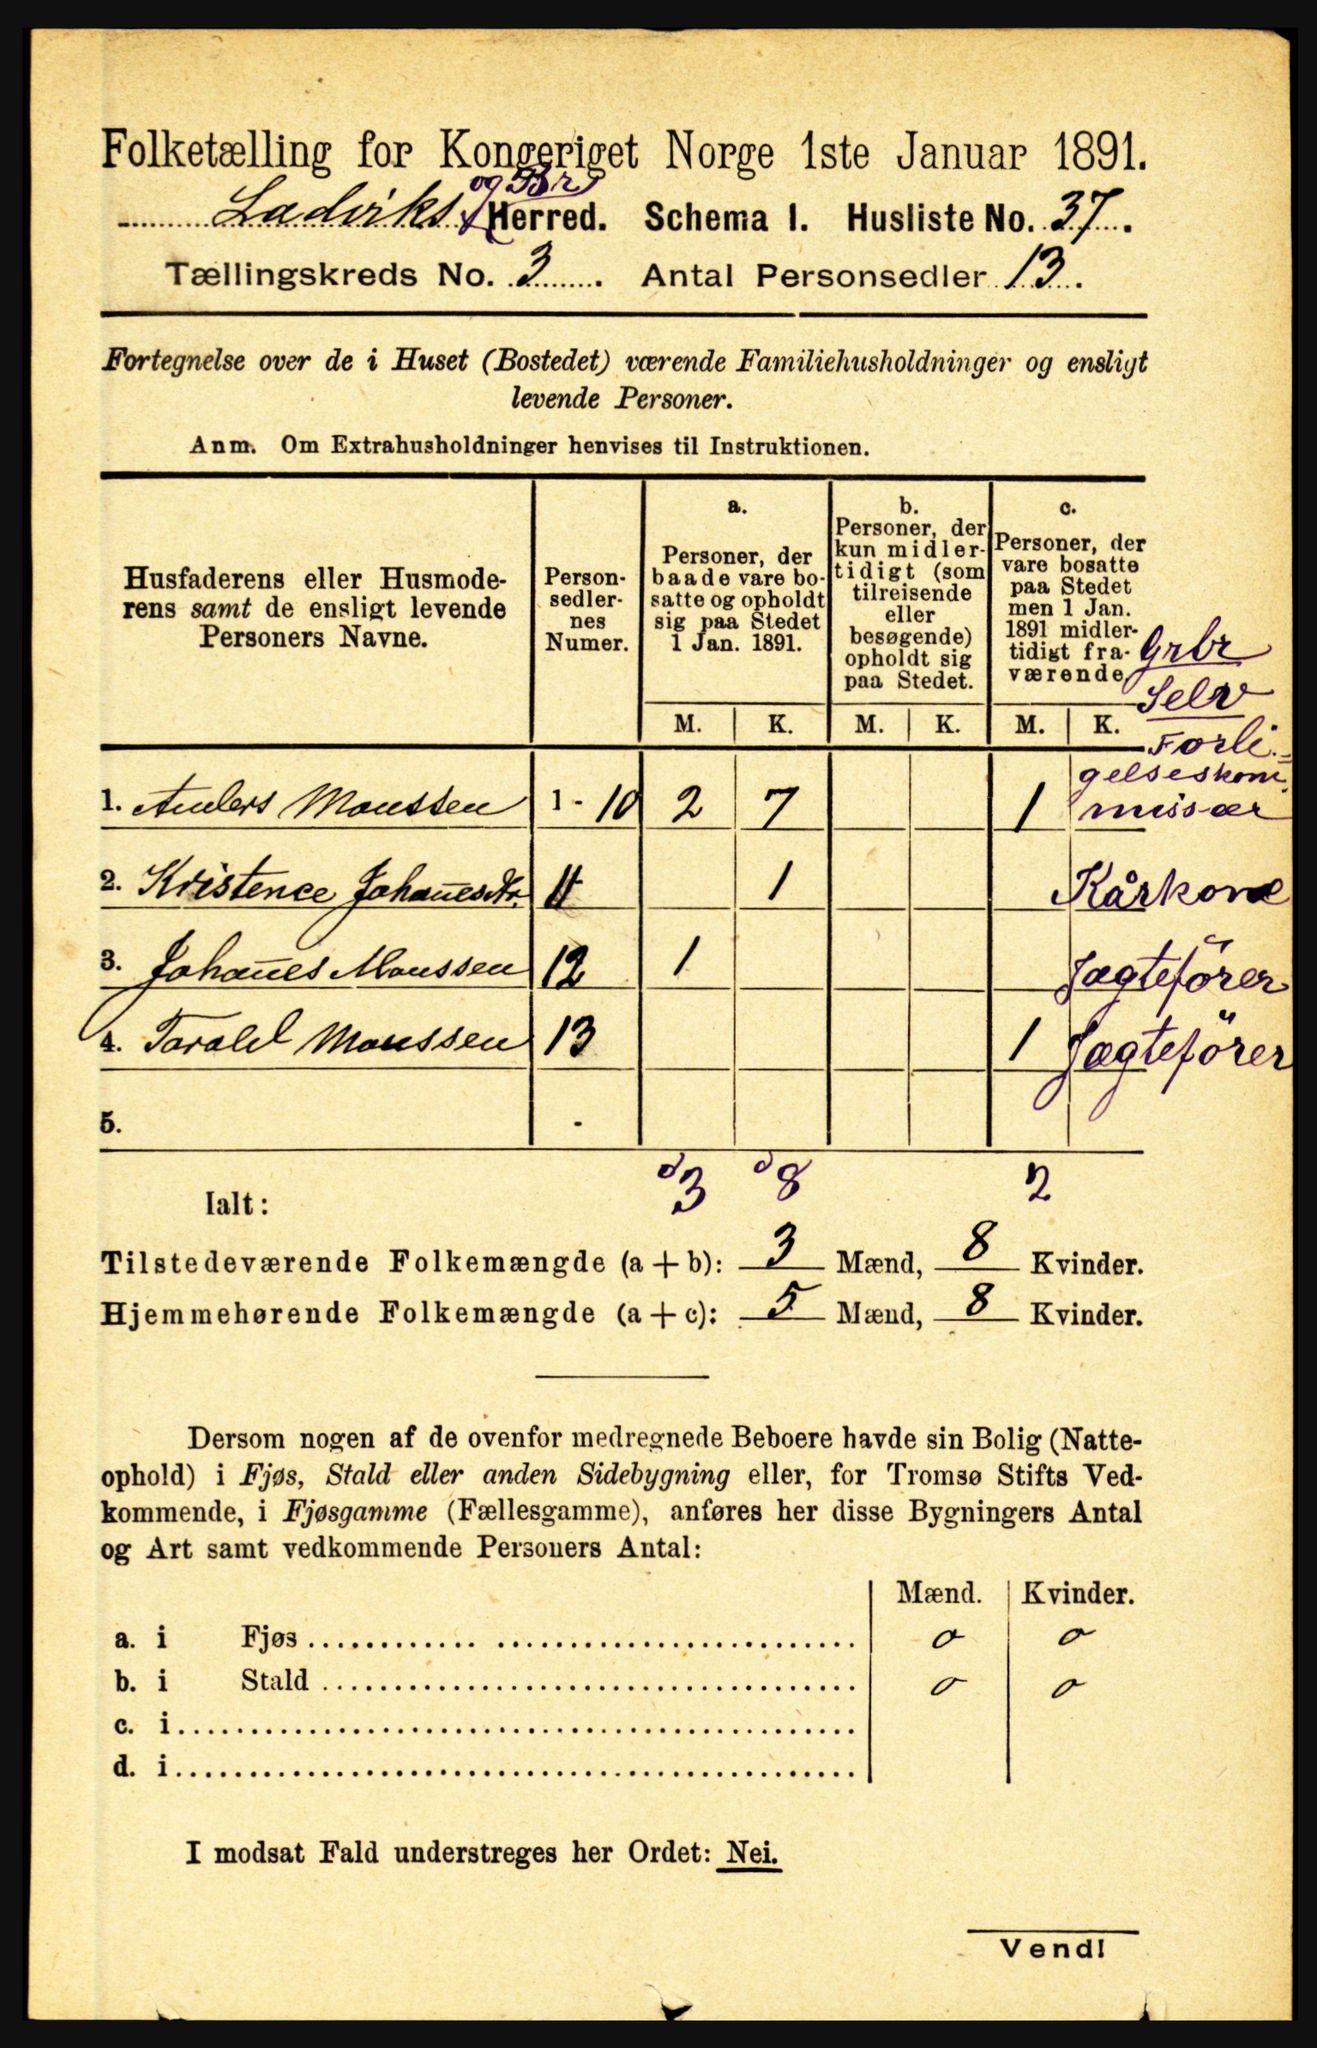 Folketælling for Kongeriget Norge 1ste Januar 1891.
og Br
Ladviks Herred. Schema I. Husliste No. 37.
Tællingskreds No. 3. Antal Personsedler 13.
Fortegnelse over de i Huset (Bostedet) værende Familiehusholdninger og ensligt
levende Personer.
Anm. Om Extrahusholdninger henvises til Instruktionen.
Husfaderens eller Husmode-
rens samt de ensligt levende
Personers Navne.
Person-
sedler-
nes
Numer.
a.
Personer, der
baade vare bo-
satte og opholdt
sig paa Stedet
1 Jan. 1891.
b.
Personer, der
kun midler-
tidigt (som
tilreisende
eller
besøgende)
opholdt sig
paa Stedet.
c.
Personer, der
vare bosatte
paa Stedet
men 1 Jan.
1891 midler-
tidigt fra-
værende
M. K. M. K. M. K.
Grbr
Selv
Forli-
gelseskom
missær
1. Anders Monssen 1 - 10 2 7 1
2. Kristence Johanesdtr. 11 1 Kårkone
3. Johanes Monssen 12 1 Jægtefører
4. Torald Monssen 13 1 Jægtefører
5. -
Ialt: 3 8 2
Tilstedeværende Folkemængde (a + b): 3 Mænd, 8 Kvinder.
Hjemmehørende Folkemængde (a + c): 5 Mænd, 8 Kvinder.
Dersom nogen af de ovenfor medregnede Beboere havde sin Bolig (Natte-
ophold) i Fjøs, Stald eller anden Sidebygning eller, for Tromsø Stifts Ved-
kommende, i Fjøsgamme (Fællesgamme), anføres her disse Bygningers Antal
og Art samt vedkommende Personers Antal:
Mænd. Kvinder.
a. i Fjøs 0 0
b. i Stald 0 0
c. i
d. i
I modsat Fald understreges her Ordet: Nei.
Vend!